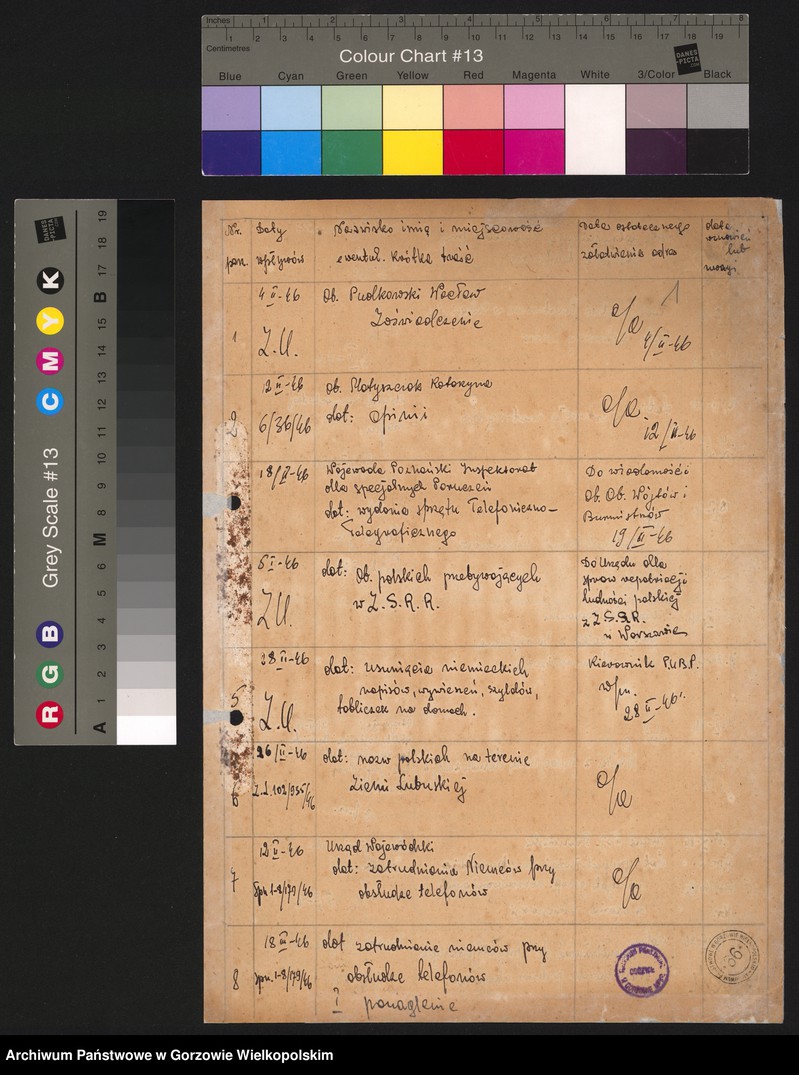 Inches 1 2 3 4 5 6 7 8
Centimetres 1 2 3 4 5 6 7 8 9 10 11 12 13 14 15 16 17 18 19
Colour Chart #13
DANES
-PICTA
.COM
Blue Cyan Green Yellow Red Magenta White 3/Color Black
Grey Scale #13
R G B C M Y K
A 1 2 3 4 5 6 M 8 9 10 11 12 13 14 15 B 17 18 19
Nr. Daty Nazwisko imię i miejscowość Data ostatecznego data
poz. wpływów ewentul. krótka treść załatwienia adres lub
4 II-46 Ob. Pudkowski Wacław
1 Zaświadczenie a/a
Z.U. 4/II-46
12 II-46 ob. Matyszczak Katarzyna a/a
2 6/36/46 dot: opinii 12/II-46
18/II-46 Wojewoda Poznański Inspektorat Do wiadomości
dla specjalnych Poruczeń Ob. Ob. Wójtów i
dot: wydania sprzętu Telefoniczno- Burmistrzów
Telegraficznego 19/II-46
5 I-46 dot: Ob. polskich przebywających Do Urzędu dla
w Z.S.R.R. spraw repatriacji
Z.U. ludności polskiej
z Z.S.R.R.
w Warszawie
28 II-46 dot: usunięcia niemieckich Kierownik P.U.B.P.
5 napisów, wywieszeń, szyldów, w/m.
Z.U. tabliczek na domach. 28 II-46r.
26/II-46 dot: nazw polskich na terenie
6 102/935/46 Ziemi Lubuskiej a/a
12 II-46 Urząd Wojewódzki
7 dot: zatrudniania Niemców przy a/a
Spn 1-8/179/46 obsłudze telefonów
18 III-46 dot zatrudnianie niemców przy
8 Spn. 1-8/179/46 obsłudze telefonów
I ponaglenie
Archiwum Państwowe w Gorzowie Wielkopolskim